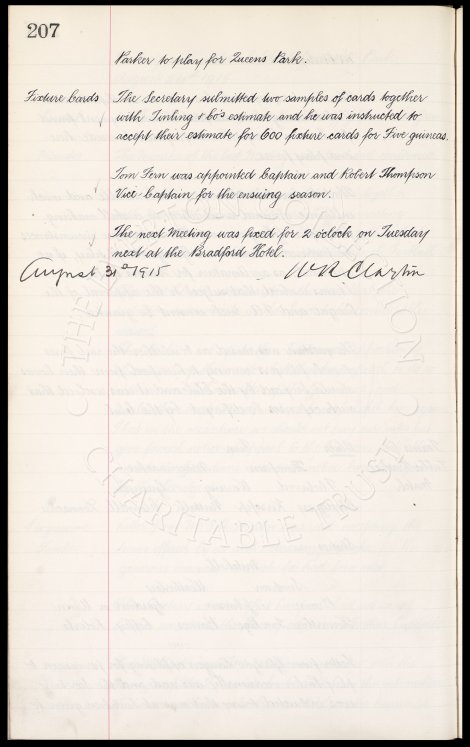 207
Parker to play for Queens Park.
Fixture Cards The Secretary submitted two samples of cards together
with Tinling & Co's estimate and he was instructed to
accept their estimate for 600 fixture cards for Five guineas.
Tom Fern was appointed Captain and Robert Thompson
Vice-Captain for the ensuing season.
The next meeting was fixed for 2 oclock on Tuesday
next at the Bradford Hotel.
August 31st 1915 W. R. Clayton
CHARITABLE TRUST